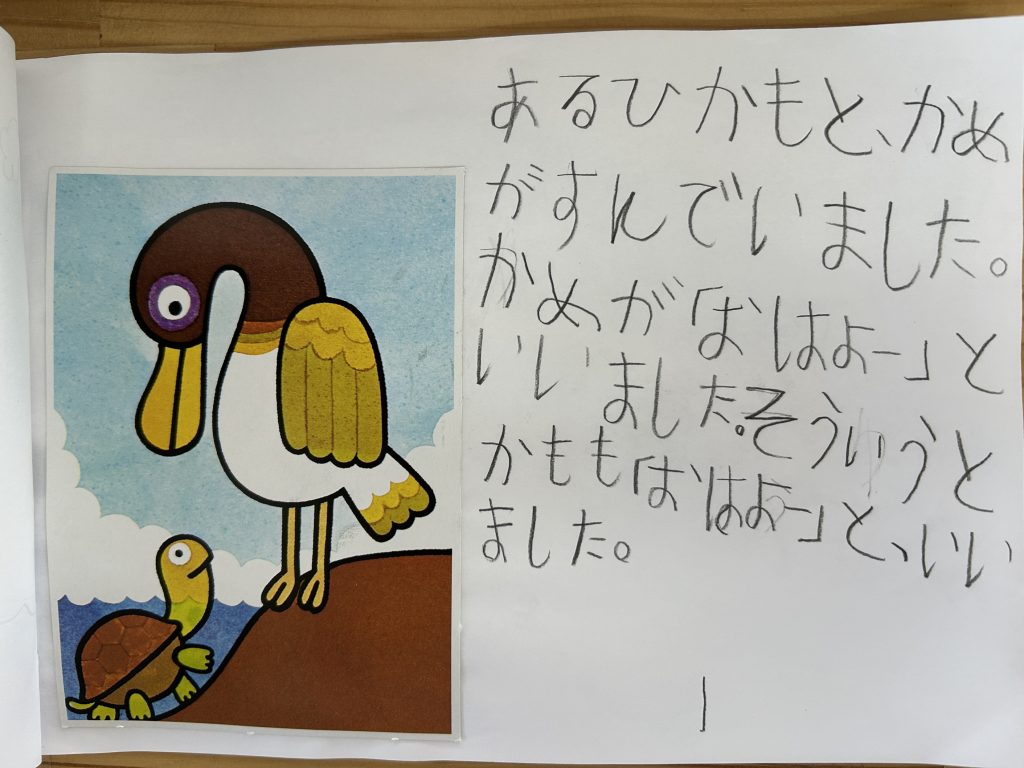 あるひかもと、かめ
がすんでいました。
かめが「おはよー」と
いいました。そういうと
かもも「おはよー」と、いい
ました。
1